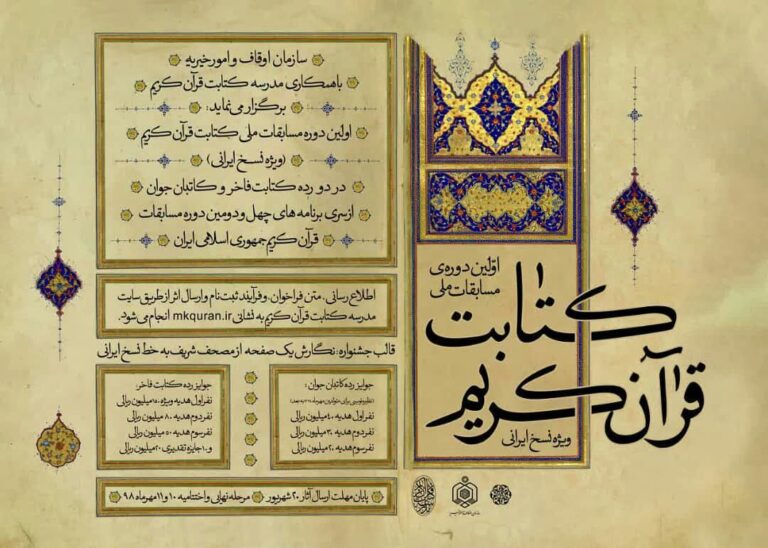 اولین دوره‌ی
مسابقات ملی
کتابت
قرآن کریم
ویژه نسخ ایرانی
سازمان اوقاف و امور خیریه
با همکاری مدرسه کتابت قرآن کریم
برگزار می‌نماید:
اولین دوره مسابقات ملی کتابت قرآن کریم
(ویژه نسخ ایرانی)
در دو رده کتابت فاخر و کاتبان جوان
از سری برنامه های چهل و دومین دوره مسابقات
قرآن کریم جمهوری اسلامی ایران
اطلاع رسانی، متن فراخوان، و فرآیند ثبت نام و ارسال اثر از طریق سایت
مدرسه کتابت قرآن کریم به نشانی mkquran.ir انجام می‌شود.
قالب جشنواره: نگارش یک صفحه از مصحف شریف به خط نسخ ایرانی
جوایز رده کاتبان جوان:
نفر اول هدیه ۴۰ میلیون ریالی
نفر دوم هدیه ۳۰ میلیون ریالی
نفر سوم هدیه ۲۰ میلیون ریالی
جوایز رده کتابت فاخر:
نفر اول هدیه ویژه ۱۵۰ میلیون ریالی
نفر دوم هدیه ۸۰ میلیون ریالی
نفر سوم هدیه ۵۰ میلیون ریالی
و ۱۰ جایزه تقدیری ۲۰ میلیون ریالی
پایان مهلت ارسال آثار ۲۰ شهریور
مرحله نهایی و اختتامیه ۱۰ و ۱۱ مهرماه ۹۸